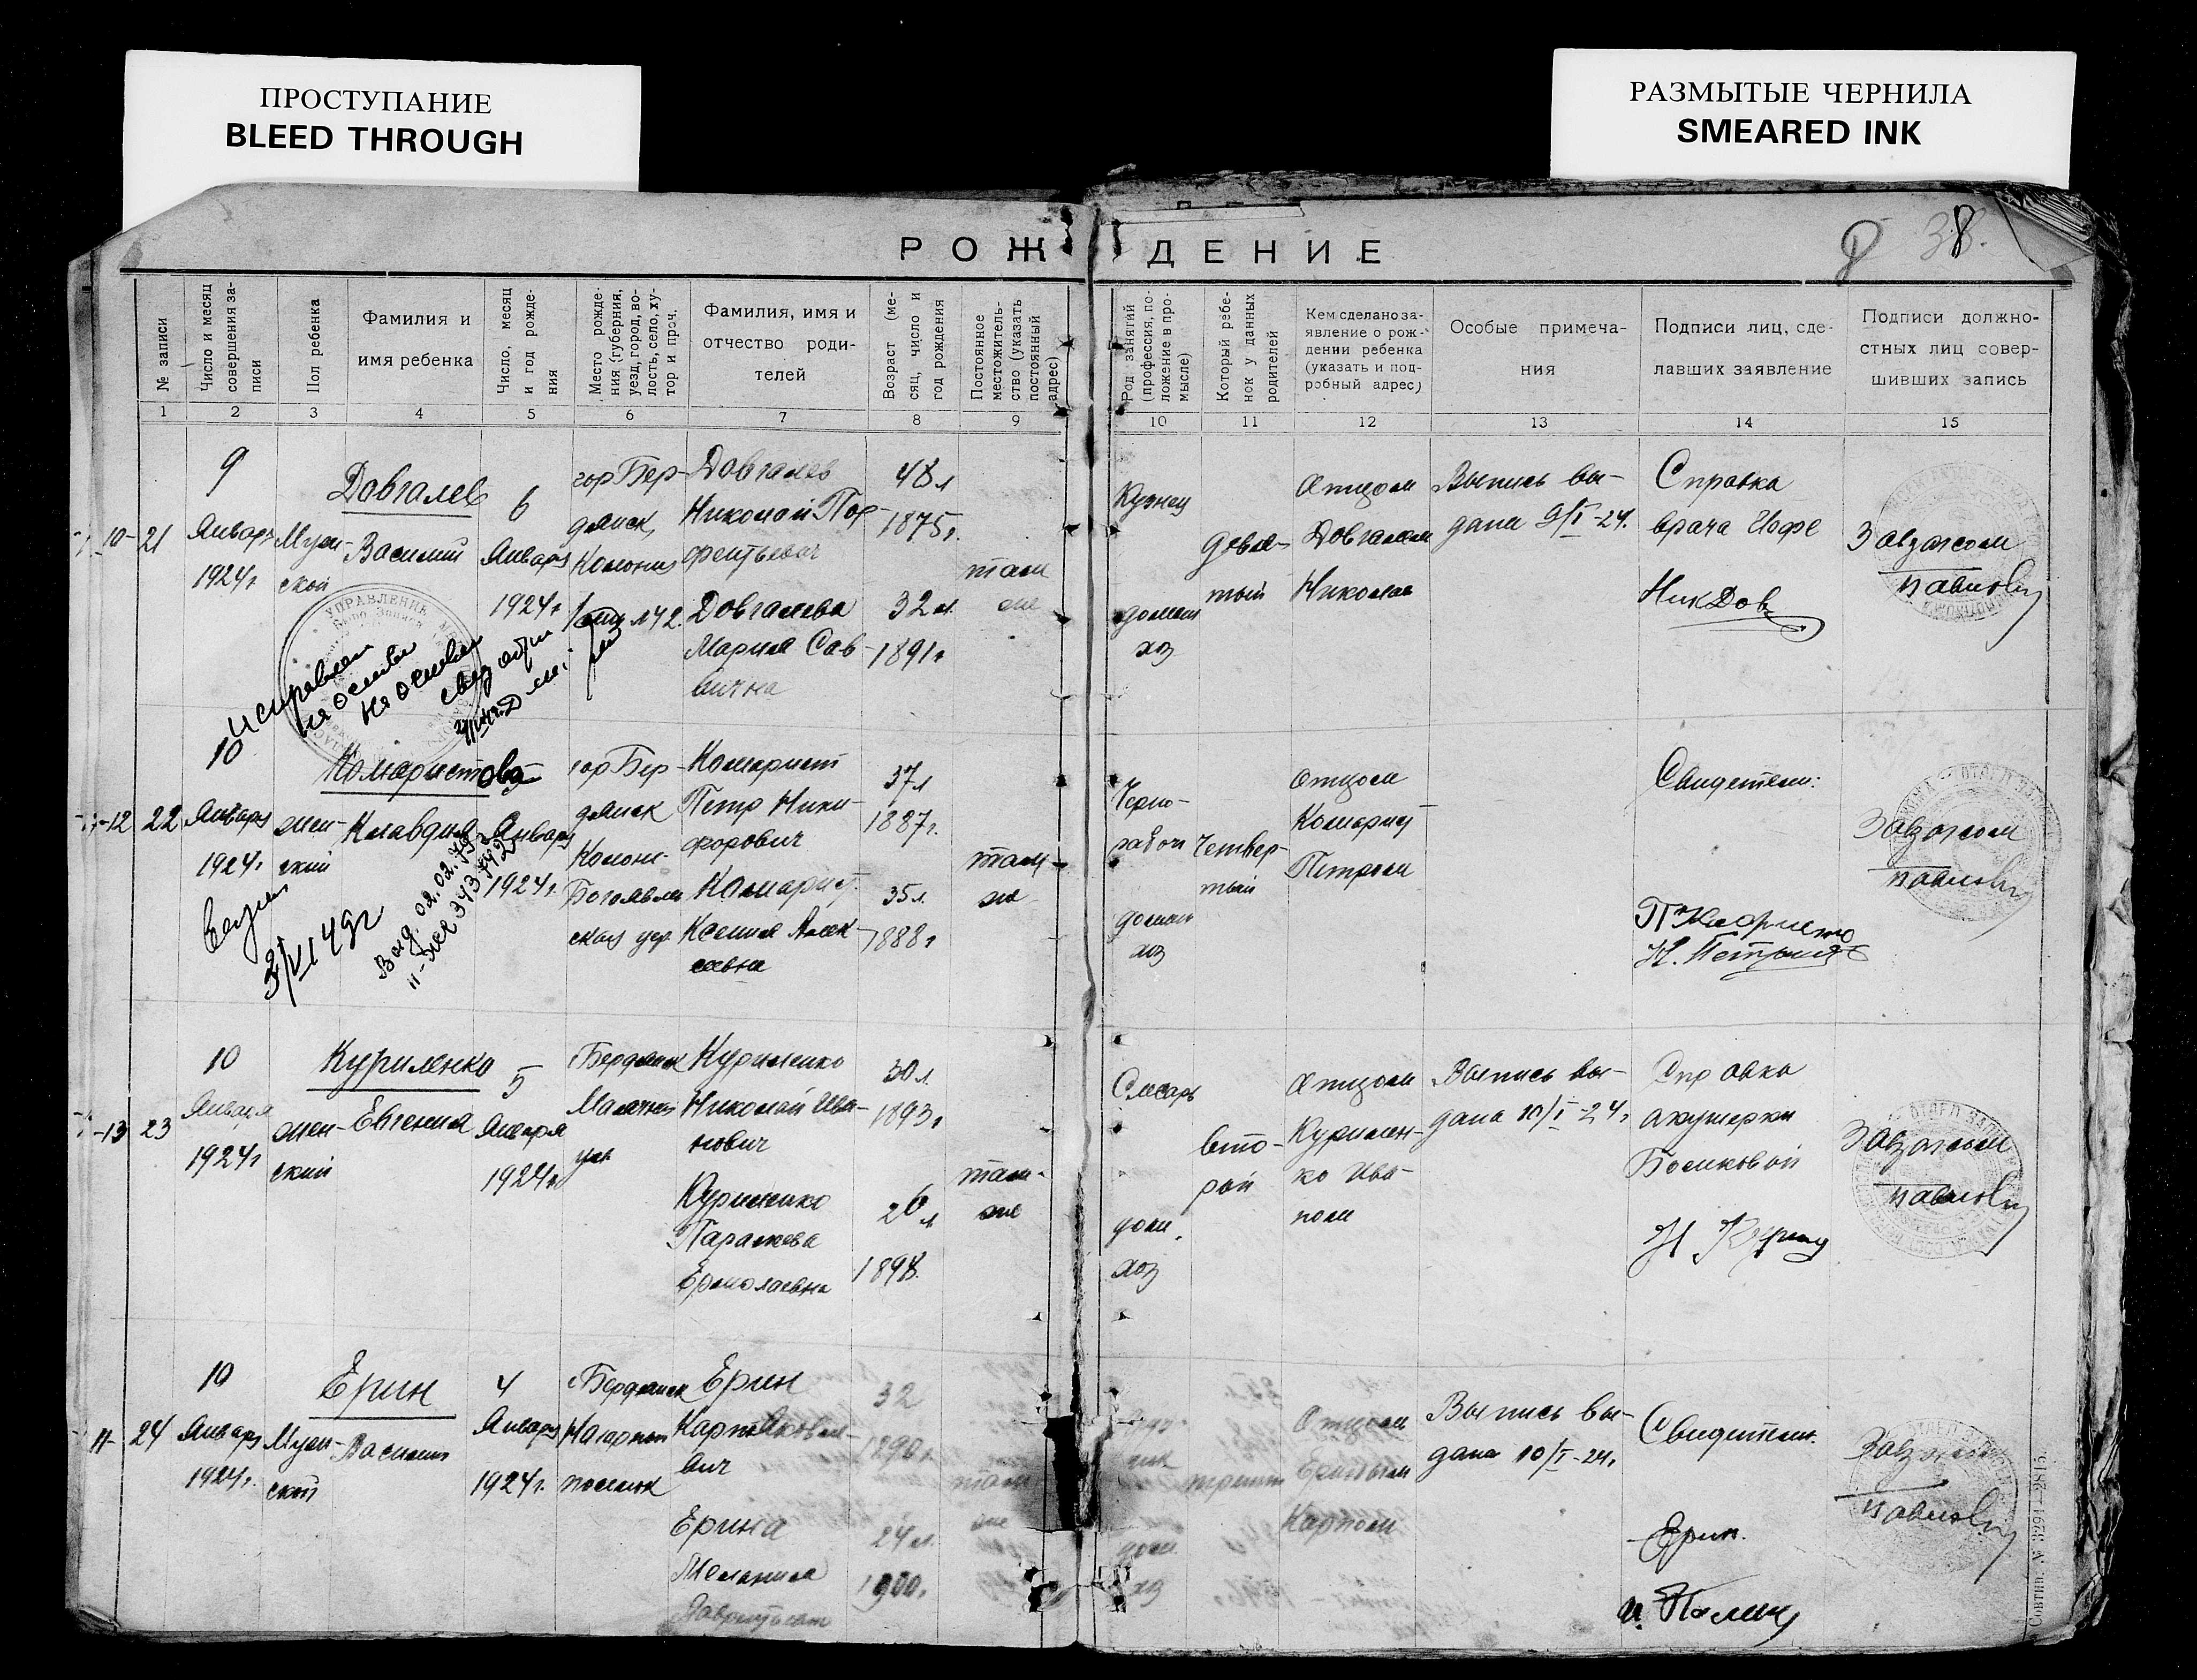 ПРОСТУПАНИЕ
BLEED THROUGH
РАЗМЫТЫЕ ЧЕРНИЛА
SMEARED INK
РОЖДЕНИЕ
8
38.
№ записи
Число и месяц совершения записи
Пол ребенка
Фамилия и
имя ребенка
Число, месяц
и год рожде-
ния
Место рожде-
ния (губерния,
уезд, город, во-
лость, село, ху-
тор и проч.
Фамилия, имя и
отчество роди-
телей
Возраст (ме-
сяц, число и
год рождения
Постоянное
местожитель-
ство (указать
постоянный
адрес)
Род занятий
(профессия, по-
ложение в про-
мысле)
Который ребе-
нок у данных
родителей
Кем сделано за-
явление о рож-
дении ребенка
(указать и под-
робный адрес)
Особые примеча-
ния
Подписи лиц, сде-
лавших заявление
Подписи должно-
стных лиц совер-
шивших запись
1 2 3 4 5 6 7 8 9 10 11 12 13 14 15
10-21
9
Январь
1924г
Муж-
ской
Довгалев
Василий
6
Январь
1924г
гор Бер-
дянск,
Колония
№42.
Довгалев
Николай Пор-
фентьевич
Довгалева
Мария Сав-
вична
48л
1875г.
32л.
1891г
там
же
Кузнец
домаш
хоз
девя-
тый
Отцом
Довгалем
Николае
Выпись вы-
дана 9/I-24.
Справка
врача Иофе
НикДов
Завзагсом
Павлов
УПРАВЛЕНИЕ
12 22
10
Январь
1924г
жен-
ский
Комаристова
Клавдия
Январь
1924г.
гор Бер-
дянск
Колони-
Богоявлен
ская ул
Комарист
Петр Ники-
форович
Комарист.
Ксения Алек-
сеевна
37л
1887г.
35л.
1888г
там-
же
Черно-
рабоч
домаш
хоз
Четвер-
тый
Отцом
Комарист
Петром
Свидетели:
Завзагсом
Павлов
3/VI 49г
Выд. 02.02.79
13 23
10
Января
1924г
жен-
ский
Куриленко
Евгения
5
Января
1924г
Бердянск
ул
Куриленко
Николай Ива-
нович
Куриленко
Параскева
Ермолаевна
30л.
1893г
26л
1898.
там-
же
Слесарь
дом.
хоз
вто-
рой
Отцом
Курилен-
ко Ива-
ном
Выпись вы-
дана 10/I-24г
Справка
акушерки
Завзагсом
Павлов
11-24
10
Январь
1924г.
Муж-
ской
Ерин
Василий
4
Январь
1924г.
Бердянск
Нагорный
поселок
Ерин
Карп Яковле-
вич
Ерина
Мелания
32
24л.
1900г.
там
же
дом.
хоз
Отцом
Ериным
Карпом
Выпись вы-
дана 10/I-24г
Свидетели.
Ерин.
Завзагсом
Павлов